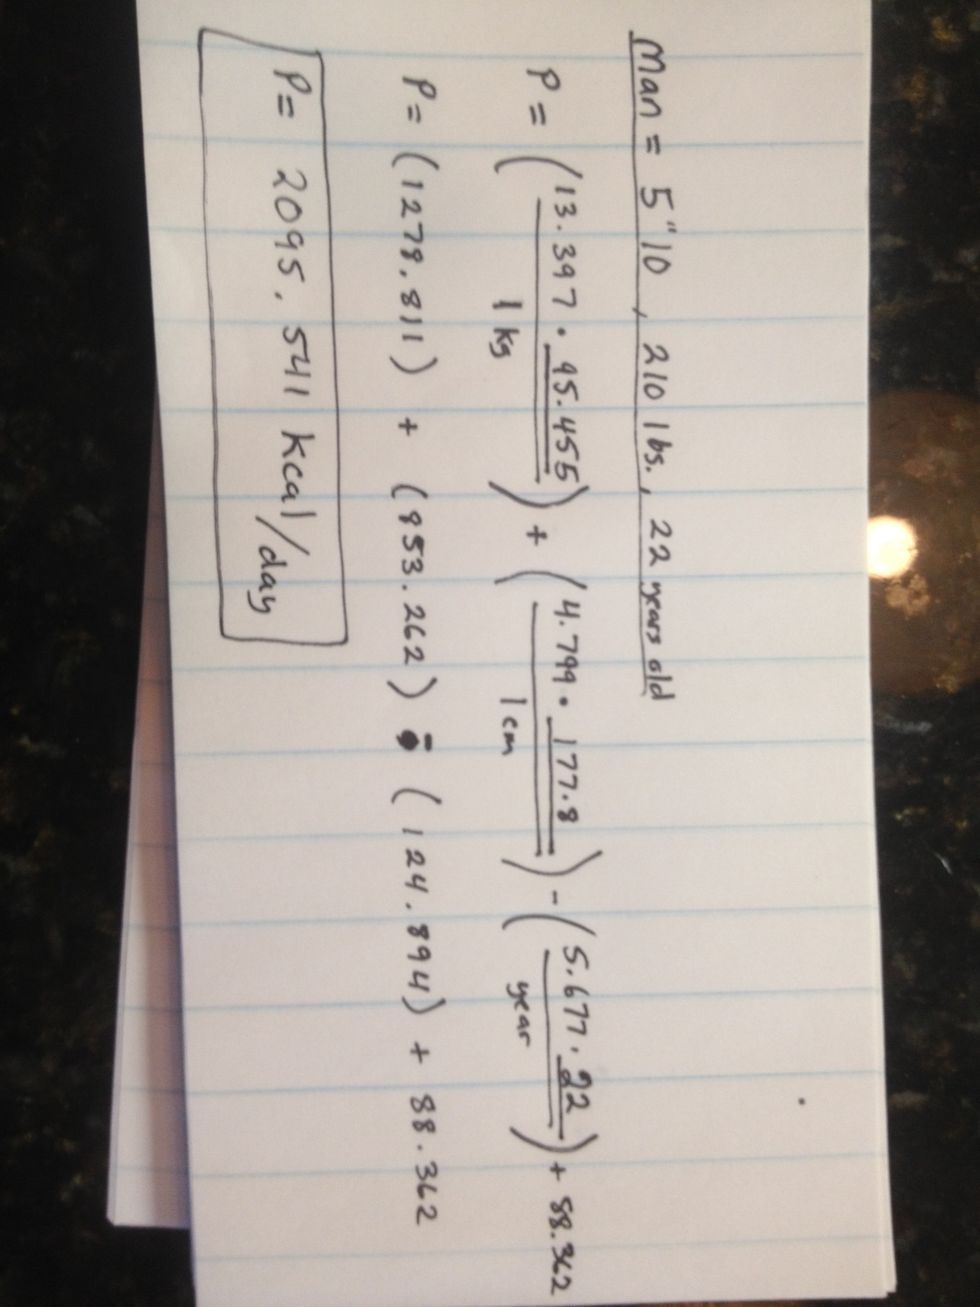 Man = 5"10, 210 lbs., 22 years old
P = (13.397 · 95.455 / 1 kg) + (4.799 · 177.8 / 1 cm) - (5.677 · 22 / year) + 88.362
P = (1278.811) + (853.262) - (124.894) + 88.362
P = 2095.541 kcal/day